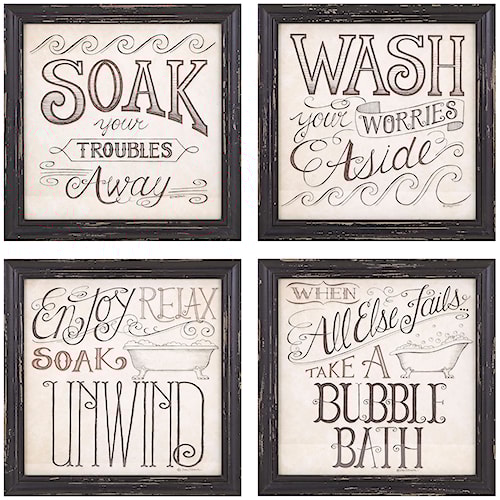 SOAK
your
TROUBLES
Away
WASH
your WORRIES
Aside
Enjoy RELAX
SOAK
UNWIND
WHEN
All Else Fails...
TAKE A
BUBBLE
BATH